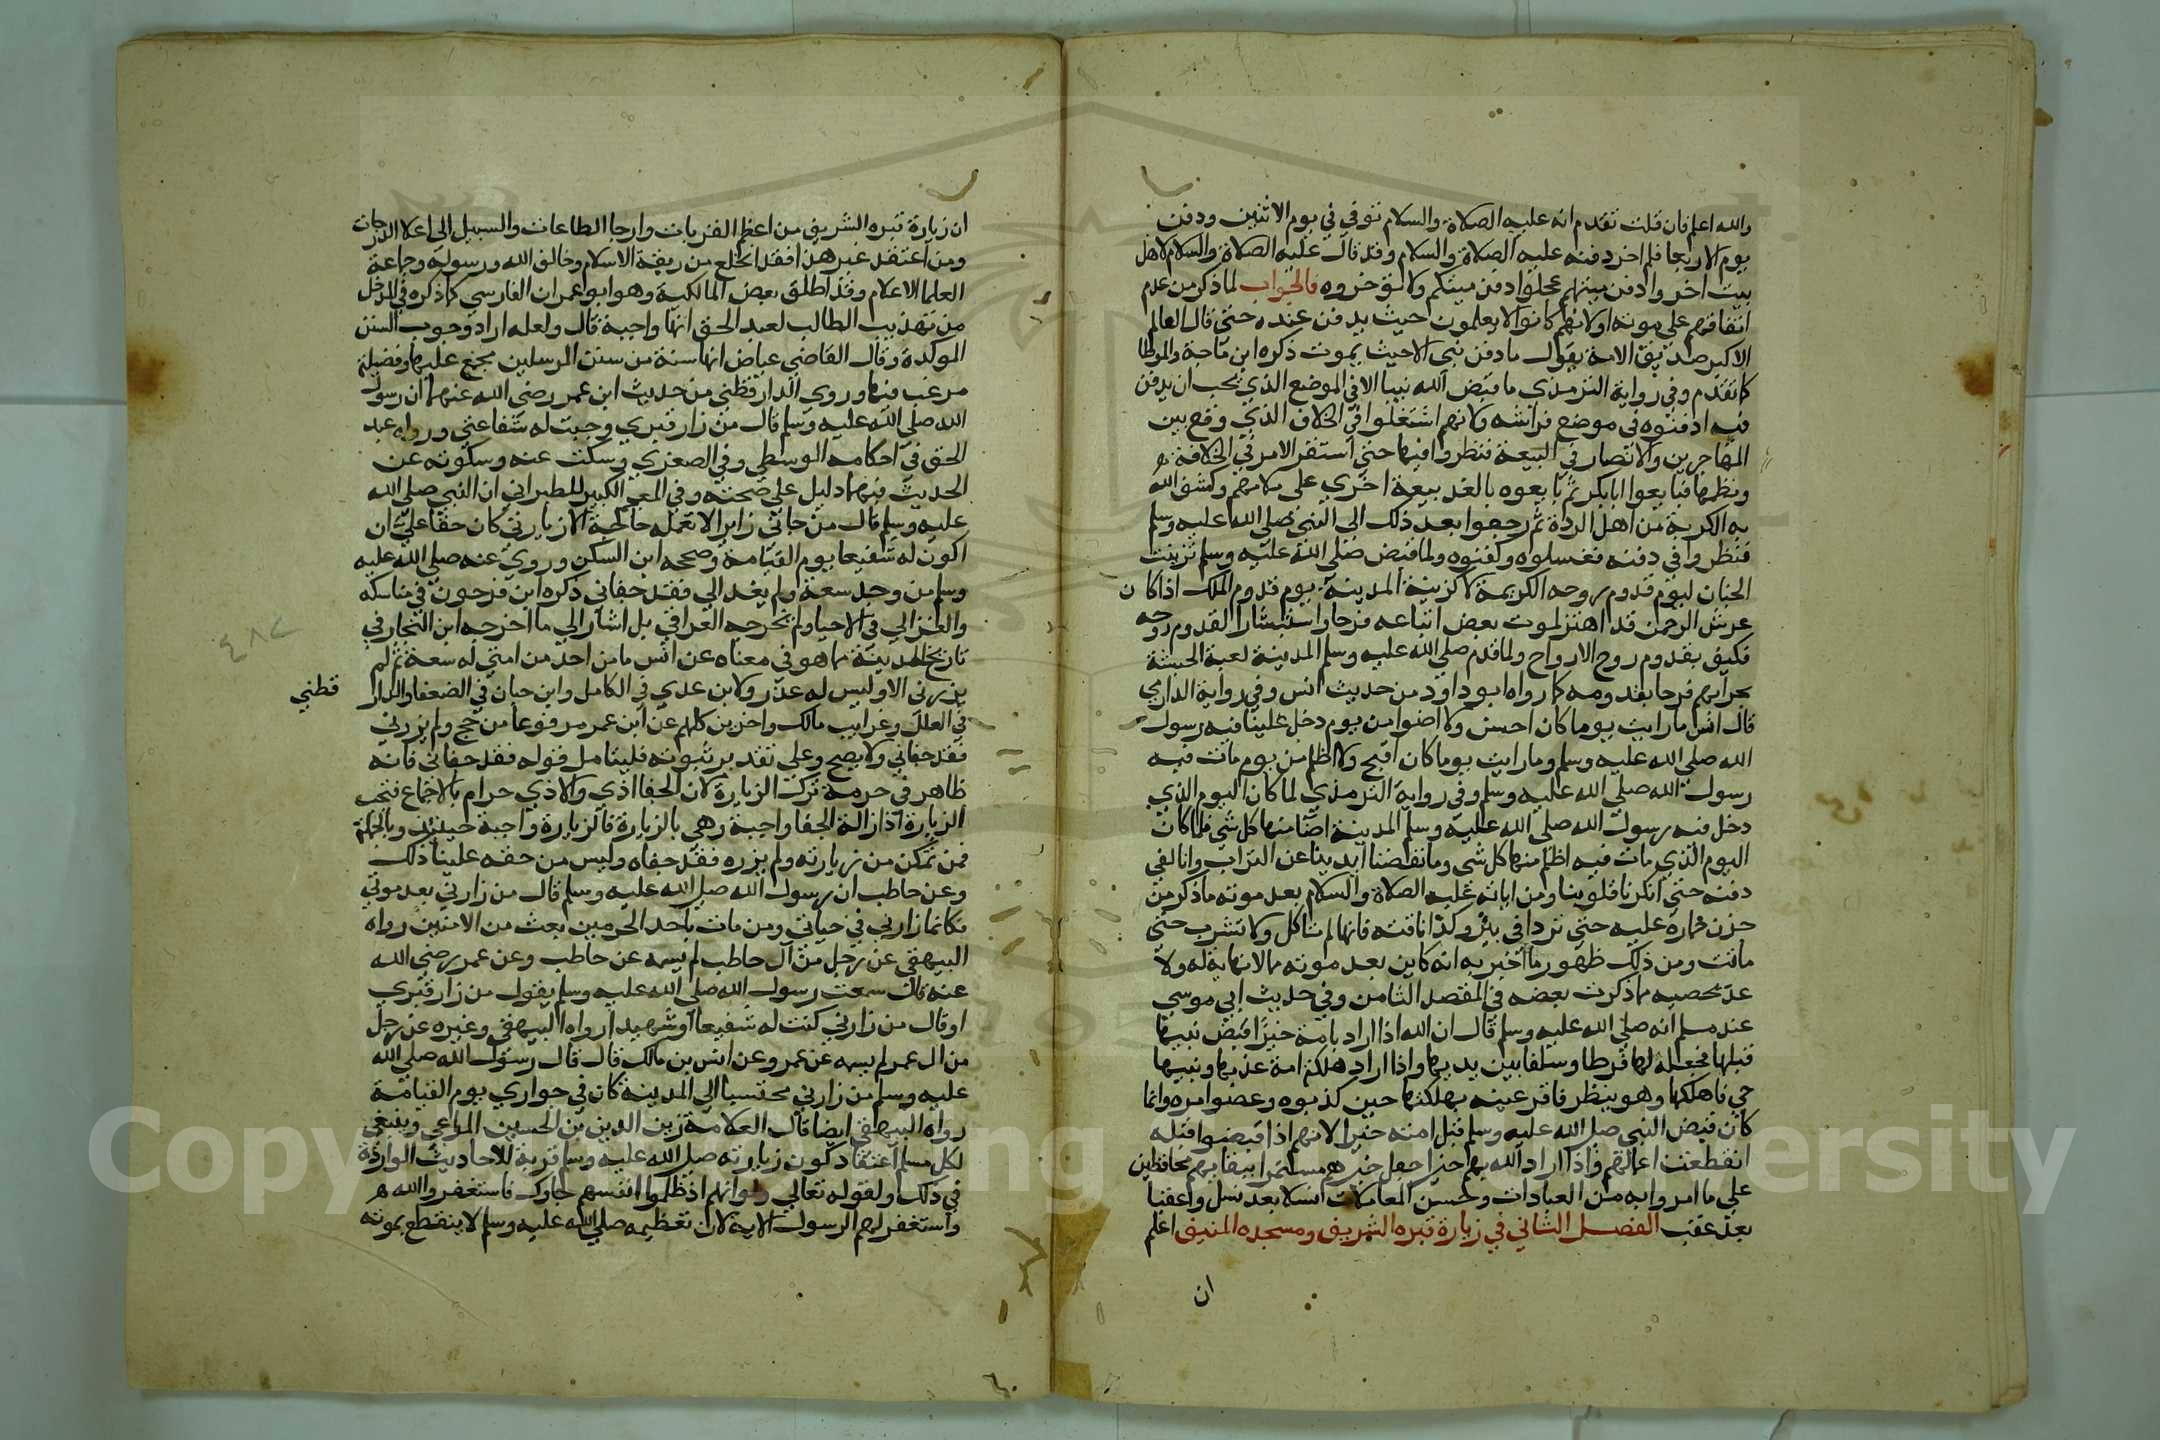 والله اعلم فان قلت تقدم انه عليه الصلاة والسلام توفي في يوم الاثنين ودفن
يوم الاربعا فلم اخر دفنه عليه الصلاة والسلام وقد قال عليه الصلاة والسلام لاهل
بيت اخروا دفن ميتهم عجلوا دفن ميتكم ولا تؤخروه فالجواب لما ذكر من عدم
اتفاقهم علي موته او لانهم كانوا لا يعلمون حيث يدفن عنده حتي قال العالم
الاكبر صديق الامة يقول ما دفن نبي الا حيث يموت ذكره ابن ماجة والموطا
كما تقدم وفي رواية الترمذي ما قبض الله نبيا الا في الموضع الذي يحب ان يدفن
فيه ادفنوه في موضع فراشه ولانهم اشتغلوا في الخلاف الذي وقع بين
المهاجرين والانصار في البيعة فنظروا فيها حتي استقر الامر في الخلافة
ونظمها فبايعوا ابا بكر ثم بايعوه بالغد بيعة اخري علي ملا منهم وكشف الله
به الكربة من اهل الردة ثم رجعوا بعد ذلك الي النبي صلي الله عليه وسلم
فنظروا في دفنه فغسلوه وكفنوه ولما قبض صلي الله عليه وسلم تزينت
الجنان ليوم قدوم روحه الكريمة لا كزينة المدينة يوم قدوم الملك اذا كان
عرش الرحمن قد اهتز لموت بعض اتباعه فرحا واستبشارا لقدوم روحه
فكيف بقدوم روح الارواح ولما قدم صلي الله عليه وسلم المدينة لعبة الحبشة
بحرابهم فرحا بقدومه كما رواه ابو داود من حديث انس وفي رواية الدارمي
قال انس ما رايت يوما كان احسن ولا اضوا من يوم دخل علينا فيه رسول
الله صلي الله عليه وسلم وما رايت يوما كان اقبح ولا اظلم من يوم مات فيه
رسول الله صلي الله عليه وسلم وفي رواية الترمذي لما كان اليوم الذي
دخل فيه رسول الله صلي الله عليه وسلم المدينة اضا منها كل شي فلما كان
اليوم الذي مات فيه اظلم منها كل شي وما نفضنا ايدينا عن التراب وانا لفي
دفنه حتي انكرنا قلوبنا ومن اياته عليه الصلاة والسلام بعد موته ما ذكر من
حزن حماره عليه حتي تردا في بئر وكذا ناقته فانها لم تاكل ولا تشرب حتي
ماتت ومن ذلك ظهور ما اخبر به انه كاين بعد موته مما لا نهاية له ولا
عد يحصيه مما ذكرت بعضه في المقصد الثامن وفي حديث ابي موسي
عند مسلم انه صلي الله عليه وسلم قال ان الله اذا اراد بامة خيرا قبض نبيها
قبلها فجعله لها فرطا وسلفا بين يديها واذا اراد هلكة امة عذبها ونبيها
حي فاهلكها وهو ينظر فاقر عينه بهلكتها حين كذبوه وعصوا امره وانما
كان قبض النبي صلي الله عليه وسلم قبل امته خيرا لانهم اذا قبضوا قبله
انقطعت اعمالهم فاذا اراد الله بهم خيرا جعل خيرهم مستمرا ببقايهم محافظين
علي ما امروا به من العبادات وحسن المعاملات نسلا بعد نسل وعقبا
بعد عقب الفصل الثاني في زيارة قبره الشريف ومسجده المنيف اعلم
ان
ان زيارة قبره الشريف من اعظم القربات وارجا الطاعات والسبيل الي اعلا الدرجات
ومن اعتقد غير هذا فقد انخلع من ربقة الاسلام وخالف الله ورسوله وجماعة
العلما الاعلام وقد اطلق بعض المالكية وهو ابو عمران الفارسي كما ذكره في المدخل
من تهذيب الطالب لعبد الحق انها واجبة قال ولعله اراد وجوب السنن
الموكدة وقال القاضي عياض انها سنة من سنن المرسلين مجمع عليها وفضيلة
مرغب فيها وروي الدارقطني من حديث ابن عمر رضي الله عنهما ان رسول
الله صلي الله عليه وسلم قال من زار قبري وجبت له شفاعتي ورواه عبد
الحق في احكامه الوسطي وفي الصغري وسكت عنه وسكوته عن
الحديث فيهما دليل علي صحته وفي المعجم الكبير للطبراني ان النبي صلي الله
عليه وسلم قال من جاني زايرا لا تعمله حاجة الا زيارتي كان حقا علي ان
اكون له شفيعا يوم القيامة وصححه ابن السكن وروي عنه صلي الله عليه
وسلم من وجد سعة ولم يفد الي فقد جفاني ذكره ابن فرحون في مناسكه
والغزالي في الاحيا ولم يخرجه العراقي بل اشار الي ما اخرجه ابن النجار في
تاريخ المدينة مما هو في معناه عن انس ما من احد من امتي له سعة ثم لم
يزرني الا وليس له عذر ولابن عدي في الكامل وابن حبان في الضعفا والدار
قطني
في العلل وغرايب مالك واخرين كلهم عن ابن عمر مرفوعا من حج ولم يزرني
فقد جفاني ولا يصح وعلي تقدير ثبوته فليتامل قوله فقد جفاني فانه
ظاهر في حرمة ترك الزيارة لان الجفا اذي والاذي حرام بالاجماع فتجب
الزيارة اذ ازالة الجفا واجبة وهي بالزيارة فالزيارة واجبة حينئذ وبالجملة
فمن تمكن من زيارته ولم يزره فقد جفاه وليس من حقه علينا ذلك
وعن حاطب ان رسول الله صلي الله عليه وسلم قال من زارني بعد موتي
فكانما زارني في حياتي ومن مات باحد الحرمين بعث من الامنين رواه
البيهقي عن رجل من آل حاطب لم يسمه عن حاطب وعن عمر رضي الله
عنه قال سمعت رسول الله صلي الله عليه وسلم يقول من زار قبري
او قال من زارني كنت له شفيعا او شهيدا رواه البيهقي وغيره عن رجل
من ال عمر لم يسمه عن عمر وعن انس بن مالك قال قال رسول الله صلي الله
عليه وسلم من زارني محتسبا الي المدينة كان في جواري يوم القيامة
رواه البيهقي ايضا قال العلامة زين الدين بن الحسين المراغي وينبغي
لكل مسلم اعتقاد كون زيارته صلي الله عليه وسلم قربة للاحاديث الواردة
في ذلك ولقوله تعالي ولو انهم اذ ظلموا انفسهم جاوك فاستغفروا الله
واستغفر لهم الرسول الاية لان تعظيمه صلي الله عليه وسلم لا ينقطع بموته